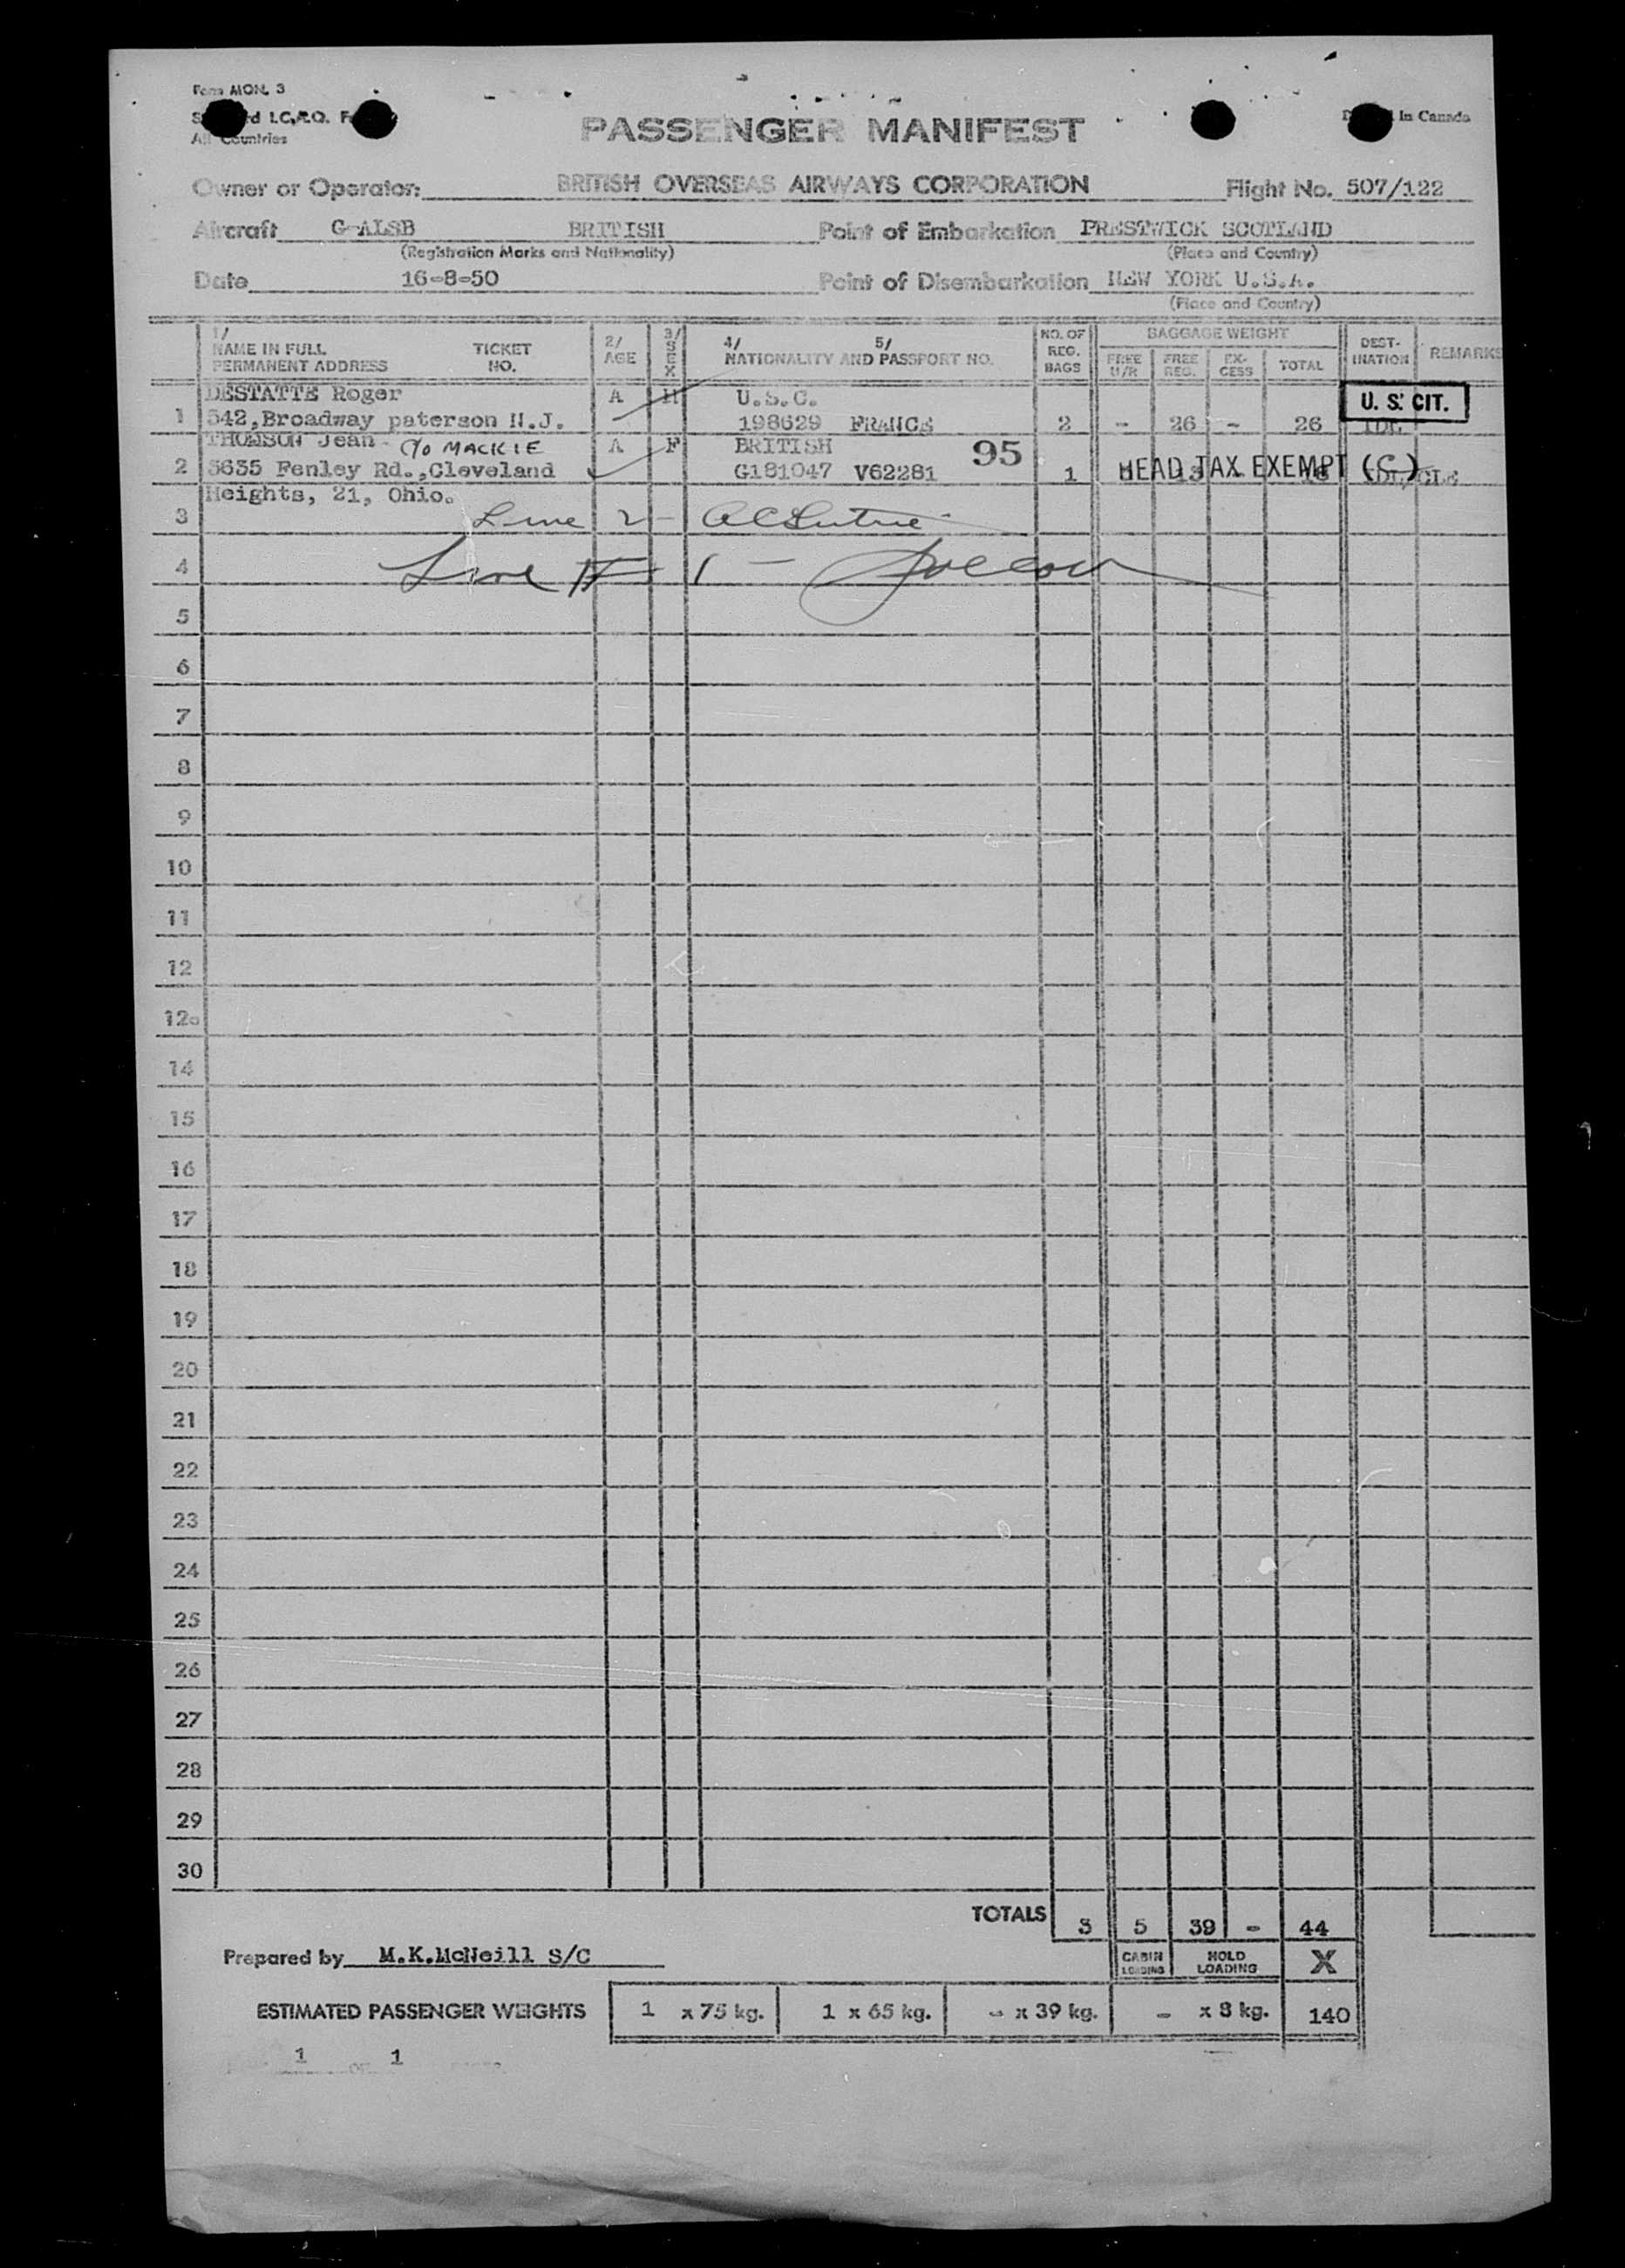 Form MON. 3
I.C.A.O.
All Countries
In Canada
PASSENGER MANIFEST
Owner or Operator: BRITISH OVERSEAS AIRWAYS CORPORATION Flight No. 507/122
Aircraft G-ALSB BRITISH Point of Embarkation PRESTWICK SCOTLAND
(Registration Marks and Nationality) (Place and Country)
Date 16-8-50 Point of Disembarkation NEW YORK U.S.A.
(Place and Country)
1/ NAME IN FULL PERMANENT ADDRESS TICKET NO. 2/ AGE 3/ SEX 4/ 5/ NATIONALITY AND PASSPORT NO. NO. OF REG. BAGS BAGGAGE WEIGHT FREE U/R FREE REG. EX-CESS TOTAL DEST-INATION REMARKS
DESTATTE Roger A M U.S.C. U.S. CIT.
1 542,Broadway paterson N.J. 198629 FRANCE 2 - 26 - 26 IDL
THOMSON Jean - C/O MACKIE A F BRITISH 95
2 3635 Fenley Rd.,Cleveland G181047 V62281 1 HEAD TAX EXEMPT (C)
Heights, 21, Ohio.
3 Line 2 -
4 Line # 1 -
5
6
7
8
9
10
11
12
12a
14
15
16
17
18
19
20
21
22
23
24
25
26
27
28
29
30
TOTALS 3 5 39 - 44
Prepared by M.K.McNeill S/C CABIN LOADING HOLD LOADING X
ESTIMATED PASSENGER WEIGHTS 1 x 75 kg. 1 x 65 kg. - x 39 kg. - x 8 kg. 140
1 OF 1